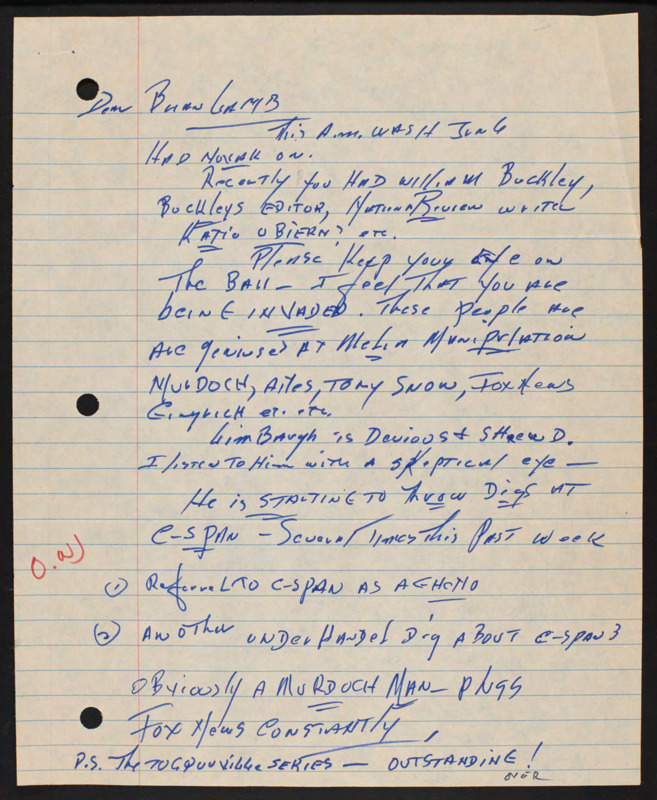 Dear Brian LAMB
This A.M. WASH JunG
HAD NOVAK on.
Recently you HAD William Buckley,
Buckleys EDITOR, NationaReview writer
KATie OBIERN? etc.
Please keep your eye on
The BALL – I feel THAT you are
beinG INVADED. These people are
Are geniuses AT MeDia MANipulation
MURDOCH, Ailes, TONY SNOW, Fox News
Gingrich etc. etc.
LimBaugh is Devious & SHrewD.
I listen To Him with A skeptical eye –
He is STARTING TO Throw Digs AT
C-SPAN – Several Times this Past week
O.N)
① Referred TO C-SPAN AS A
② Another UNDerHANDeD Dig ABOUT C-SPAN 3
OBViously A MURDOCH MAN – Plugs
Fox News CONSTANTLY,
P.S. The TOCQUEVille SERIES – OUTSTANDING!
OVER